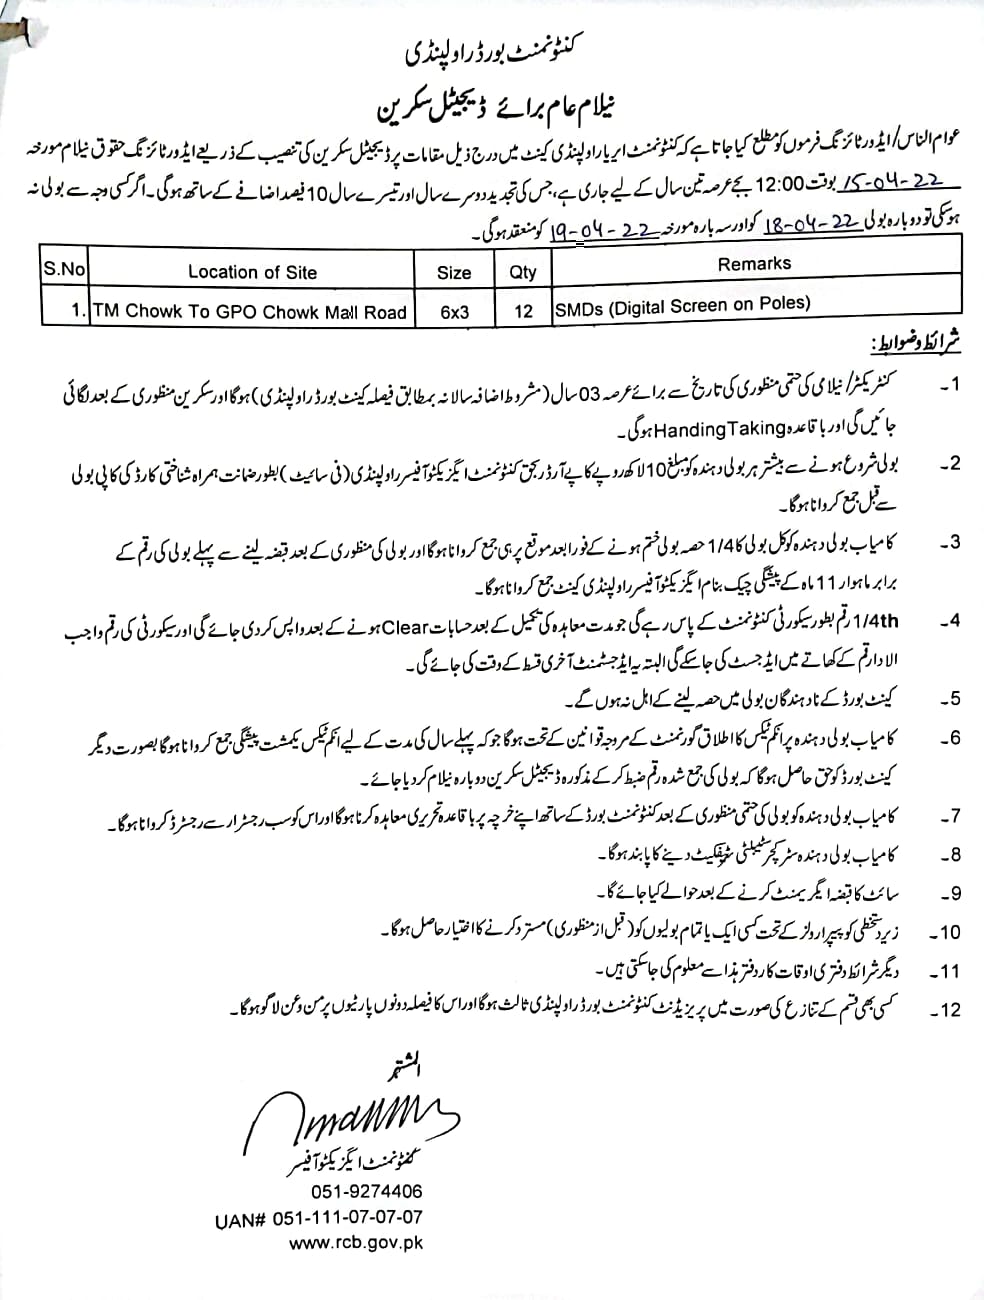 کنٹونمنٹ بورڈ راولپنڈی
نیلام عام برائے ڈیجیٹل سکرین
عوام الناس/ایڈورٹائزنگ فرموں کو مطلع کیا جاتا ہے کہ کنٹونمنٹ ایریا راولپنڈی کینٹ میں درج ذیل مقامات پر ڈیجیٹل سکرین کی تنصیب کے ذریعے ایڈورٹائزنگ حقوق نیلام مورخہ
15-04-22 بوقت 12:00 بجے عرصہ تین سال کے لیے جاری ہے، جس کی تجدید دوسرے سال اور تیسرے سال 10 فیصد اضافے کے ساتھ ہوگی۔ اگر کسی وجہ سے بولی نہ
ہوسکی تو دوبارہ بولی 18-04-22 کو اور سہ بارہ مورخہ 19-04-22 کو منعقد ہوگی۔
S.No Location of Site Size Qty Remarks
1. TM Chowk To GPO Chowk Mall Road 6x3 12 SMDs (Digital Screen on Poles)
شرائط و ضوابط:
1۔ کنٹریکٹر/نیلامی کی حتمی منظوری کی تاریخ سے برائے عرصہ 03 سال (مشروط اضافہ سالانہ بمطابق فیصلہ کینٹ بورڈ راولپنڈی) ہوگا اور سکرین منظوری کے بعد لگائی
جائیں گی اور باقاعدہ HandingTaking ہوگی۔
2۔ بولی شروع ہونے سے پیشتر ہر بولی دہندہ کو مبلغ 10 لاکھ روپے کا پے آرڈر بحق کنٹونمنٹ ایگزیکٹو آفیسر راولپنڈی (فی سائیٹ) بطور ضمانت ہمراہ شناختی کارڈ کی کاپی بولی
سے قبل جمع کروانا ہوگا۔
3۔ کامیاب بولی دہندہ کو کل بولی کا 1/4 حصہ بولی ختم ہونے کے فوراً بعد موقع پر ہی جمع کروانا ہوگا اور بولی کی منظوری کے بعد قبضہ لینے سے پہلے بولی کی رقم کے
برابر ماہوار 11 ماہ کے پیشگی چیک بنام ایگزیکٹو آفیسر راولپنڈی کینٹ جمع کروانا ہوگا۔
4۔ 1/4th رقم بطور سیکورٹی کنٹونمنٹ کے پاس رہے گی جو مدت معاہدہ کی تکمیل کے بعد حسابات Clear ہونے کے بعد واپس کردی جائے گی اور سیکورٹی کی رقم واجب
الادا رقم کے کھاتے میں ایڈجسٹ کی جاسکے گی البتہ یہ ایڈجسٹمنٹ آخری قسط کے وقت کی جائے گی۔
5۔ کینٹ بورڈ کے نادہندگان بولی میں حصہ لینے کے اہل نہ ہوں گے۔
6۔ کامیاب بولی دہندہ پر انکم ٹیکس کا اطلاق گورنمنٹ کے مروجہ قوانین کے تحت ہوگا جو کہ پہلے سال کی مدت کے لیے انکم ٹیکس یکمشت پیشگی جمع کروانا ہوگا بصورت دیگر
کینٹ بورڈ کو حق حاصل ہوگا کہ بولی کی جمع شدہ رقم ضبط کرکے مذکورہ ڈیجیٹل سکرین دوبارہ نیلام کردیا جائے۔
7۔ کامیاب بولی دہندہ کو بولی کی حتمی منظوری کے بعد کنٹونمنٹ بورڈ کے ساتھ اپنے خرچہ پر باقاعدہ تحریری معاہدہ کرنا ہوگا اور اس کو سب رجسٹرار سے رجسٹرڈ کروانا ہوگا۔
8۔ کامیاب بولی دہندہ سٹرکچر سٹیبلٹی سرٹیفکیٹ دینے کا پابند ہوگا۔
9۔ سائٹ کا قبضہ ایگریمنٹ کرنے کے بعد حوالے کیا جائے گا۔
10۔ زیر دستخطی کو پیپرا رولز کے تحت کسی ایک یا تمام بولیوں کو (قبل از منظوری) مسترد کرنے کا اختیار حاصل ہوگا۔
11۔ دیگر شرائط دفتری اوقات کار دفتر ہذا سے معلوم کی جاسکتی ہیں۔
12۔ کسی بھی قسم کے تنازع کی صورت میں پریزیڈنٹ کنٹونمنٹ بورڈ راولپنڈی ثالث ہوگا اور اس کا فیصلہ دونوں پارٹیوں پر من و عن لاگو ہوگا۔
المشتہر
کنٹونمنٹ ایگزیکٹو آفیسر
051-9274406
UAN# 051-111-07-07-07
www.rcb.gov.pk